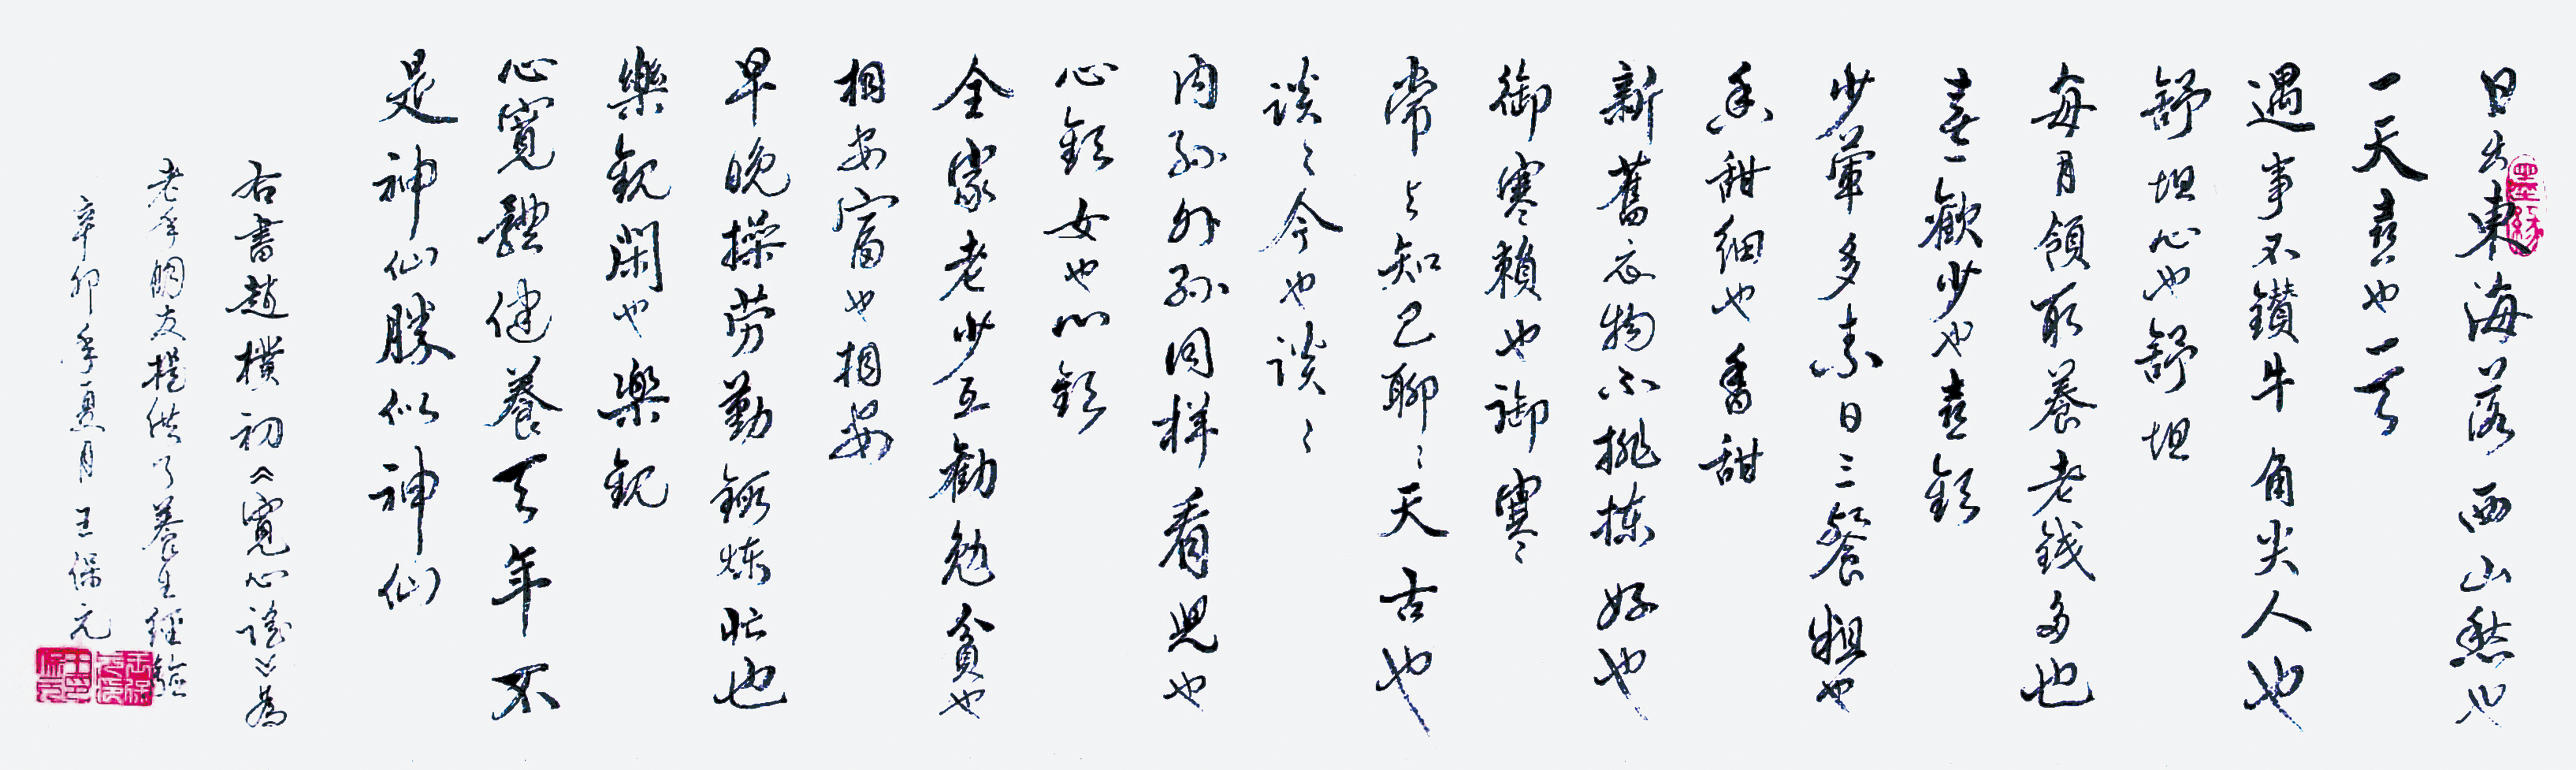 日出東海落西山愁也
一天喜也一天
遇事不鑽牛角尖人也
舒坦心也舒坦
每月領取養老钱多也
喜歡少也喜歡
少葷多素日三餐粗也
香甜细也香甜
新舊衣物不挑揀好也
御寒赖也御寒
常与知己聊聊天古也
谈谈今也谈谈
内孙外孙同样看児也
心歡女也心歡
全家老少互勸勉貧也
相安富也相安
早晚操劳勤鍛炼忙也
樂觀閑也樂觀
心寬體健養天年不
是神仙勝似神仙
右書趙樸初《寬心謠》為
老年朋友提供了養生經驗
辛卯年夏月王保元
墨缘